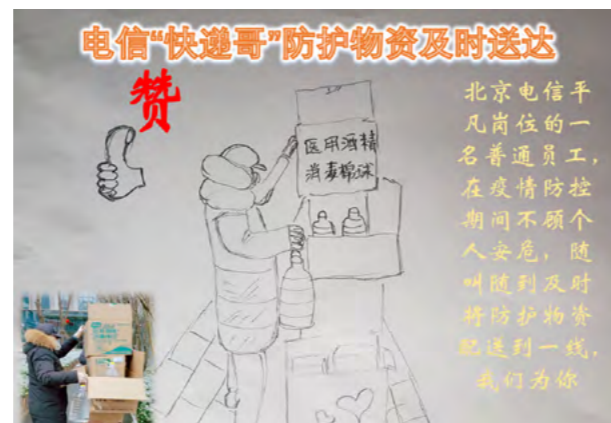 电信“快递哥”防护物资及时送达
赞
医用酒精
消毒棉球
北京电信平
凡岗位的一
名普通员工，
在疫情防控
期间不顾个
人安危，随
叫随到及时
将防护物资
配送到一线，
我们为你